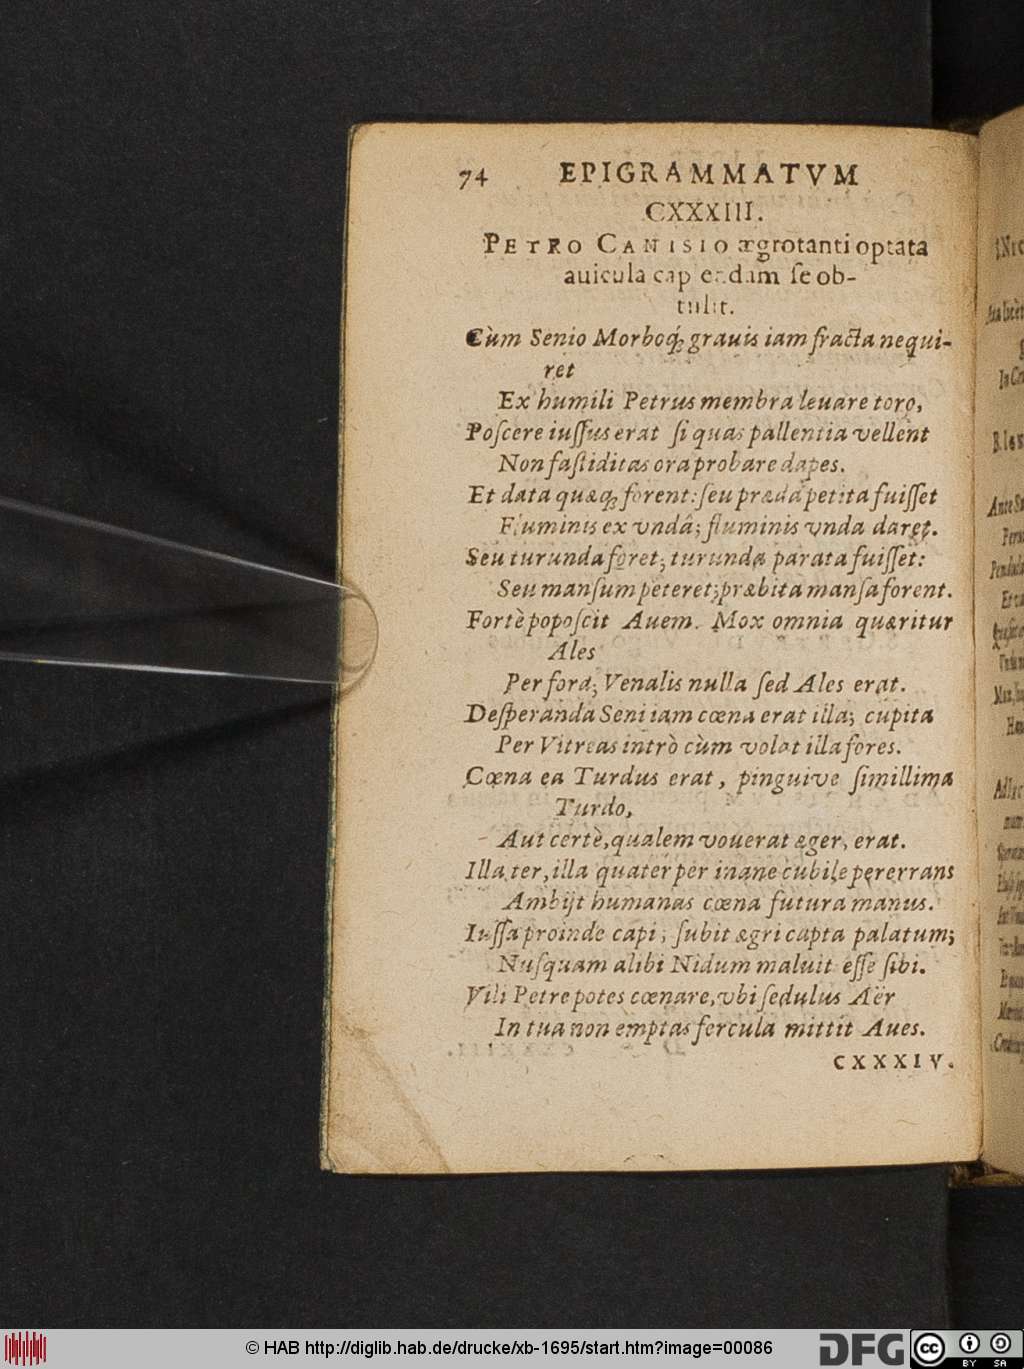 74 EPIGRAMMATVM
CXXXIII.
PETRO CANISIO ægrotanti optata
auicula capiendam ſe ob-
tulit.
Cùm Senio Morboq́; grauis iam fracta nequi-
ret
Ex humili Petrus membra leuare toro,
Poſcere iuſſus erat ſi quas pallentia vellent
Non faſtiditas ora probare dapes.
Et data quæq; forent: ſeu præda petita fuiſſet
Fluminis ex vndâ; fluminis vnda daret.
Seu turunda foret; turunda parata fuiſſet:
Seu manſum peteret; præbita manſa forent.
Fortè popoſcit Auem. Mox omnia quæritur
Ales
Per fora; Venalis nulla ſed Ales erat.
Deſperanda Seni iam cœna erat illa; cupita
Per Vitreas intrò cùm volat illa fores.
Cœna ea Turdus erat, pinguive ſimillima
Turdo,
Aut certè, qualem vouerat æger, erat.
Illa ter, illa quater per inane cubile pererrans
Ambijt humanas cœna futura manus.
Iuſſa proinde capi, ſubit ægri capta palatum;
Nuſquam alibi Nidum maluit eſſe ſibi.
Vili Petre potes cœnare, vbi ſedulus Aër
In tua non emptas fercula mittit Aues.
CXXXIV.
© HAB http://diglib.hab.de/drucke/xb-1695/start.htm?image=00086
DFG
cc
BY SA